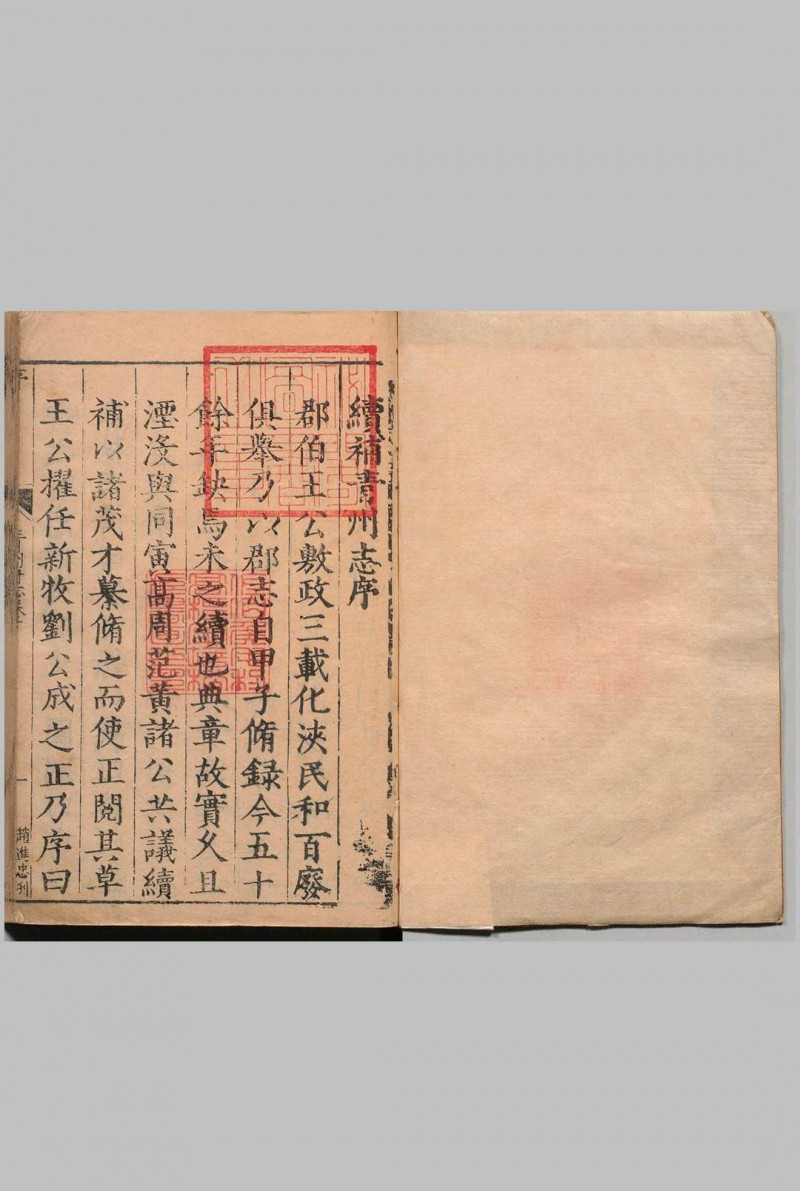 續補青州志序
郡伯王公敷政三載化浹民和百廢
俱舉乃以郡志自甲子脩録今五十
餘年缺焉未之續也典章故實久且
湮沒與同寅高周范黃諸公共議續
補以諸茂才纂脩之而使正閱其草
王公擢任新牧劉公成之正乃序曰
序
一
趙進忠刊